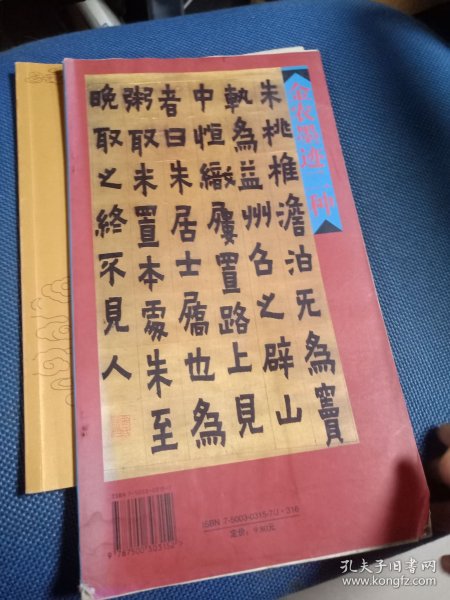 金农墨迹二种
朱桃椎澹泊无為竇
軌為益州召之辟山
中恒織屨置路上見
者曰朱居士屩也為
粥取米置本處朱至
晚取之終不見人
ISBN 7-5003-0315-7
9 787500 303152 >
ISBN 7-5003-0315-7/J·316
定价：9.80元
孔夫子旧书网
www.kongfz.com